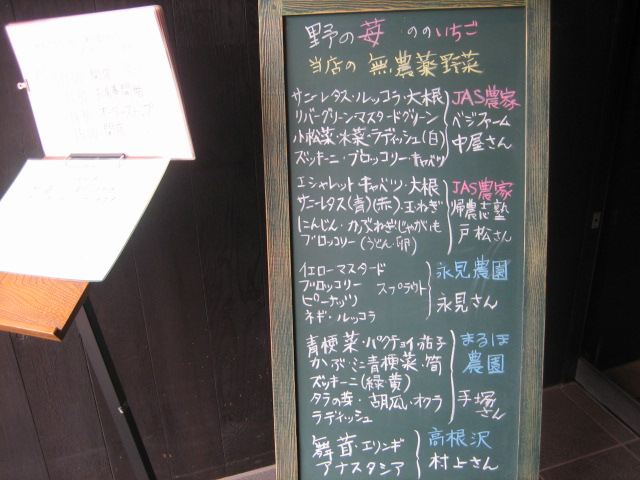 野の苺 ののいちご
当店の 無農薬野菜
サニーレタス・ルッコラ・大根
リバーグリーンマスタードグリーン
小松菜・水菜・ラディッシュ(白)
ズッキーニ・ブロッコリー・キャベツ
JAS農家
ベジファーム
中屋さん
エシャレット キャベツ・大根
サニーレタス(青)(赤)・玉ねぎ
にんじん・かぶねぎじゃがいも
ブロッコリー(うどん・卵)
JAS農家
帰農志塾
戸松さん
イエローマスタード
ブロッコリー スプラウト
ピーナッツ
ネギ・ルッコラ
永見農園
永見さん
青梗菜・パクチョイ茄子
かぶ・ミニ青梗菜・筍
ズッキーニ(緑・黄)
タラの芽・胡瓜・オクラ
ラディッシュ
まるほ
農園
手塚
さん
舞茸・エリンギ
アナスタシア
高根沢
村上さん